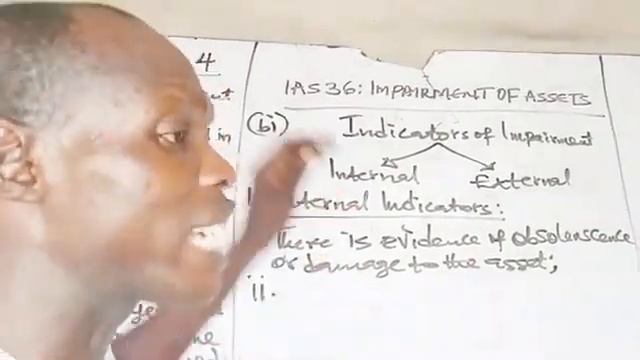 4
IAS 36: IMPAIRMENT OF ASSETS
(bi) Indicators of Impairment
Internal External
Indicators:
There is evidence of obsolenscence
or damage to the asset;
ii.